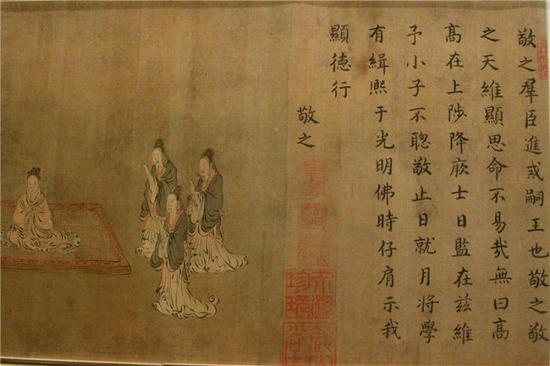 敬之羣臣進戒嗣王也敬之敬
之天維顯思命不易哉無曰高
高在上陟降厥士日監在兹維
予小子不聰敬止日就月將學
有緝熙于光明佛時仔肩示我
顯德行
敬之